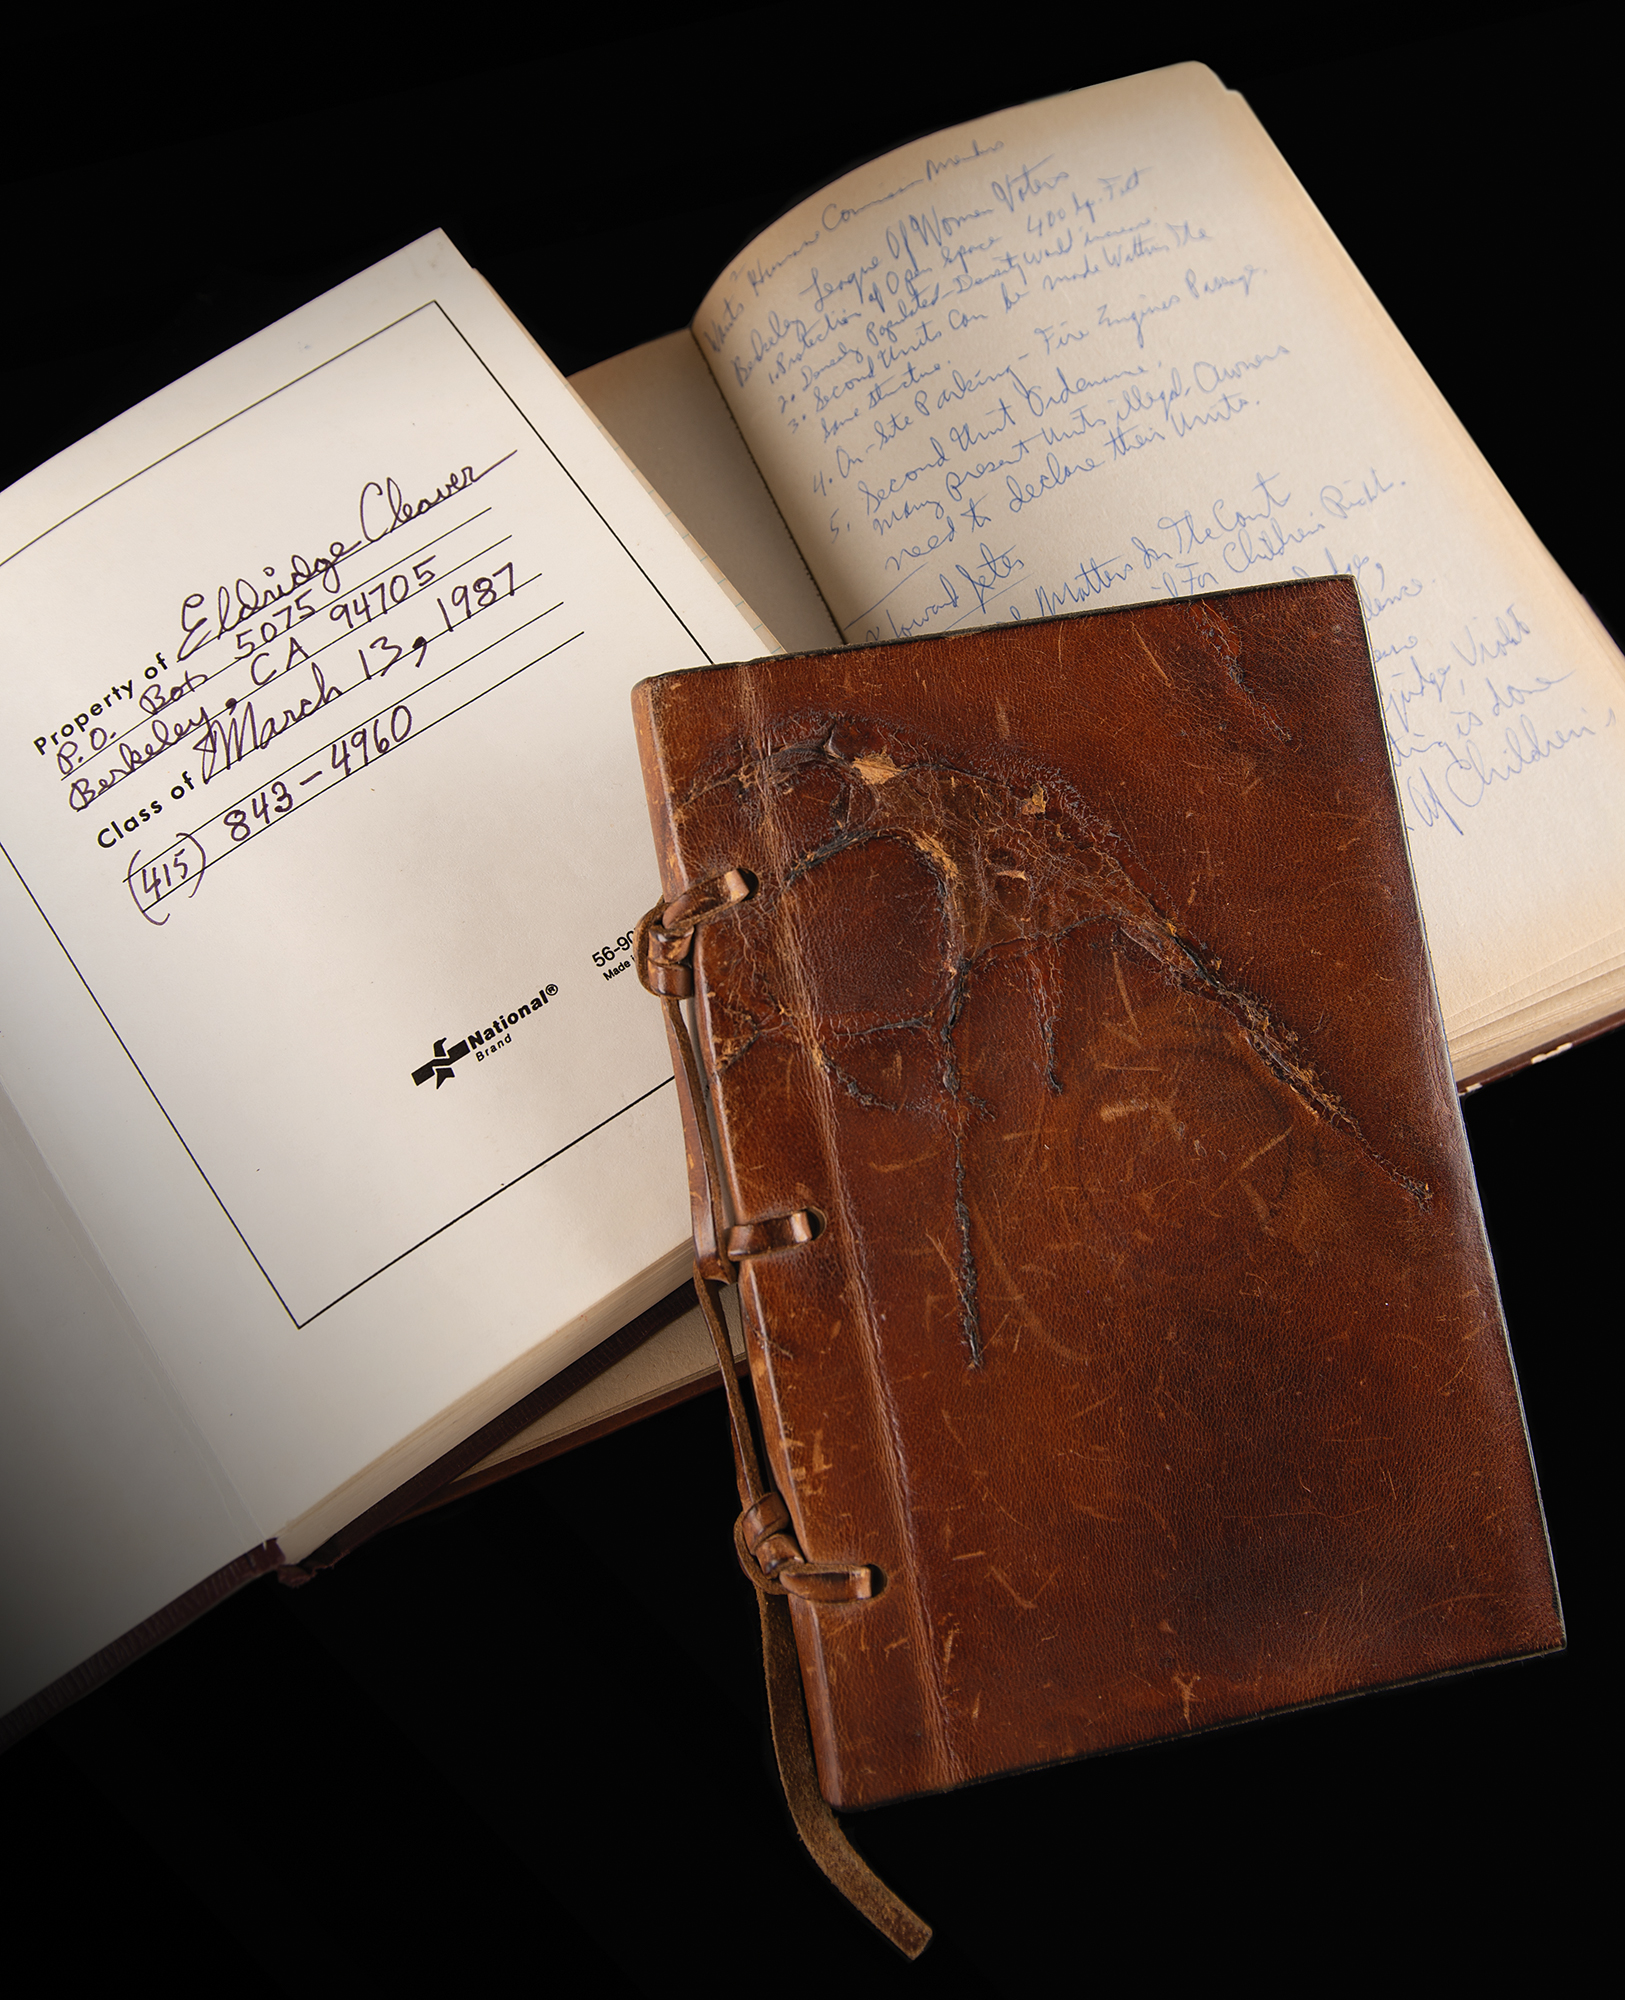 Property of Eldridge Cleaver
P.O. Box 5075
Berkeley, CA 94705
Class of March 13, 1987
(415) 843-4960
National®
Brand
56-90
Made
Wants Humane Commission Members
Berkeley League Of Women Voters
1. Protection of Open Space 400 Sq. Feet
2. Densely Populated - Density would increase.
3. Second Units Can be made Within The
Same Structure.
4. On-Site Parking - Fire Engines Passage.
5. Second Unit Ordenance.
Many present Units illegal. Owners
need to declare their Units.
Howard
Matters In The Court
For Children's
judge,
judge, Violet
is done
Of Children's